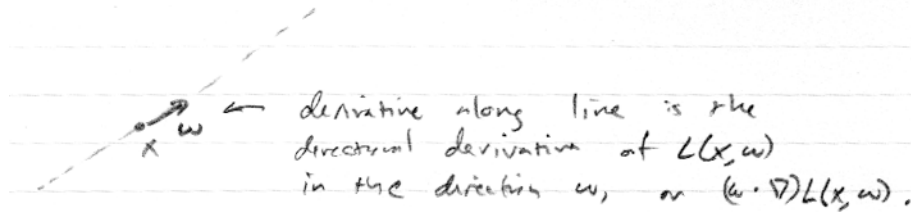 ← derivative along line is the
x ω directional derivative of L(x, ω)
in the direction ω, or (ω · ∇)L(x, ω).